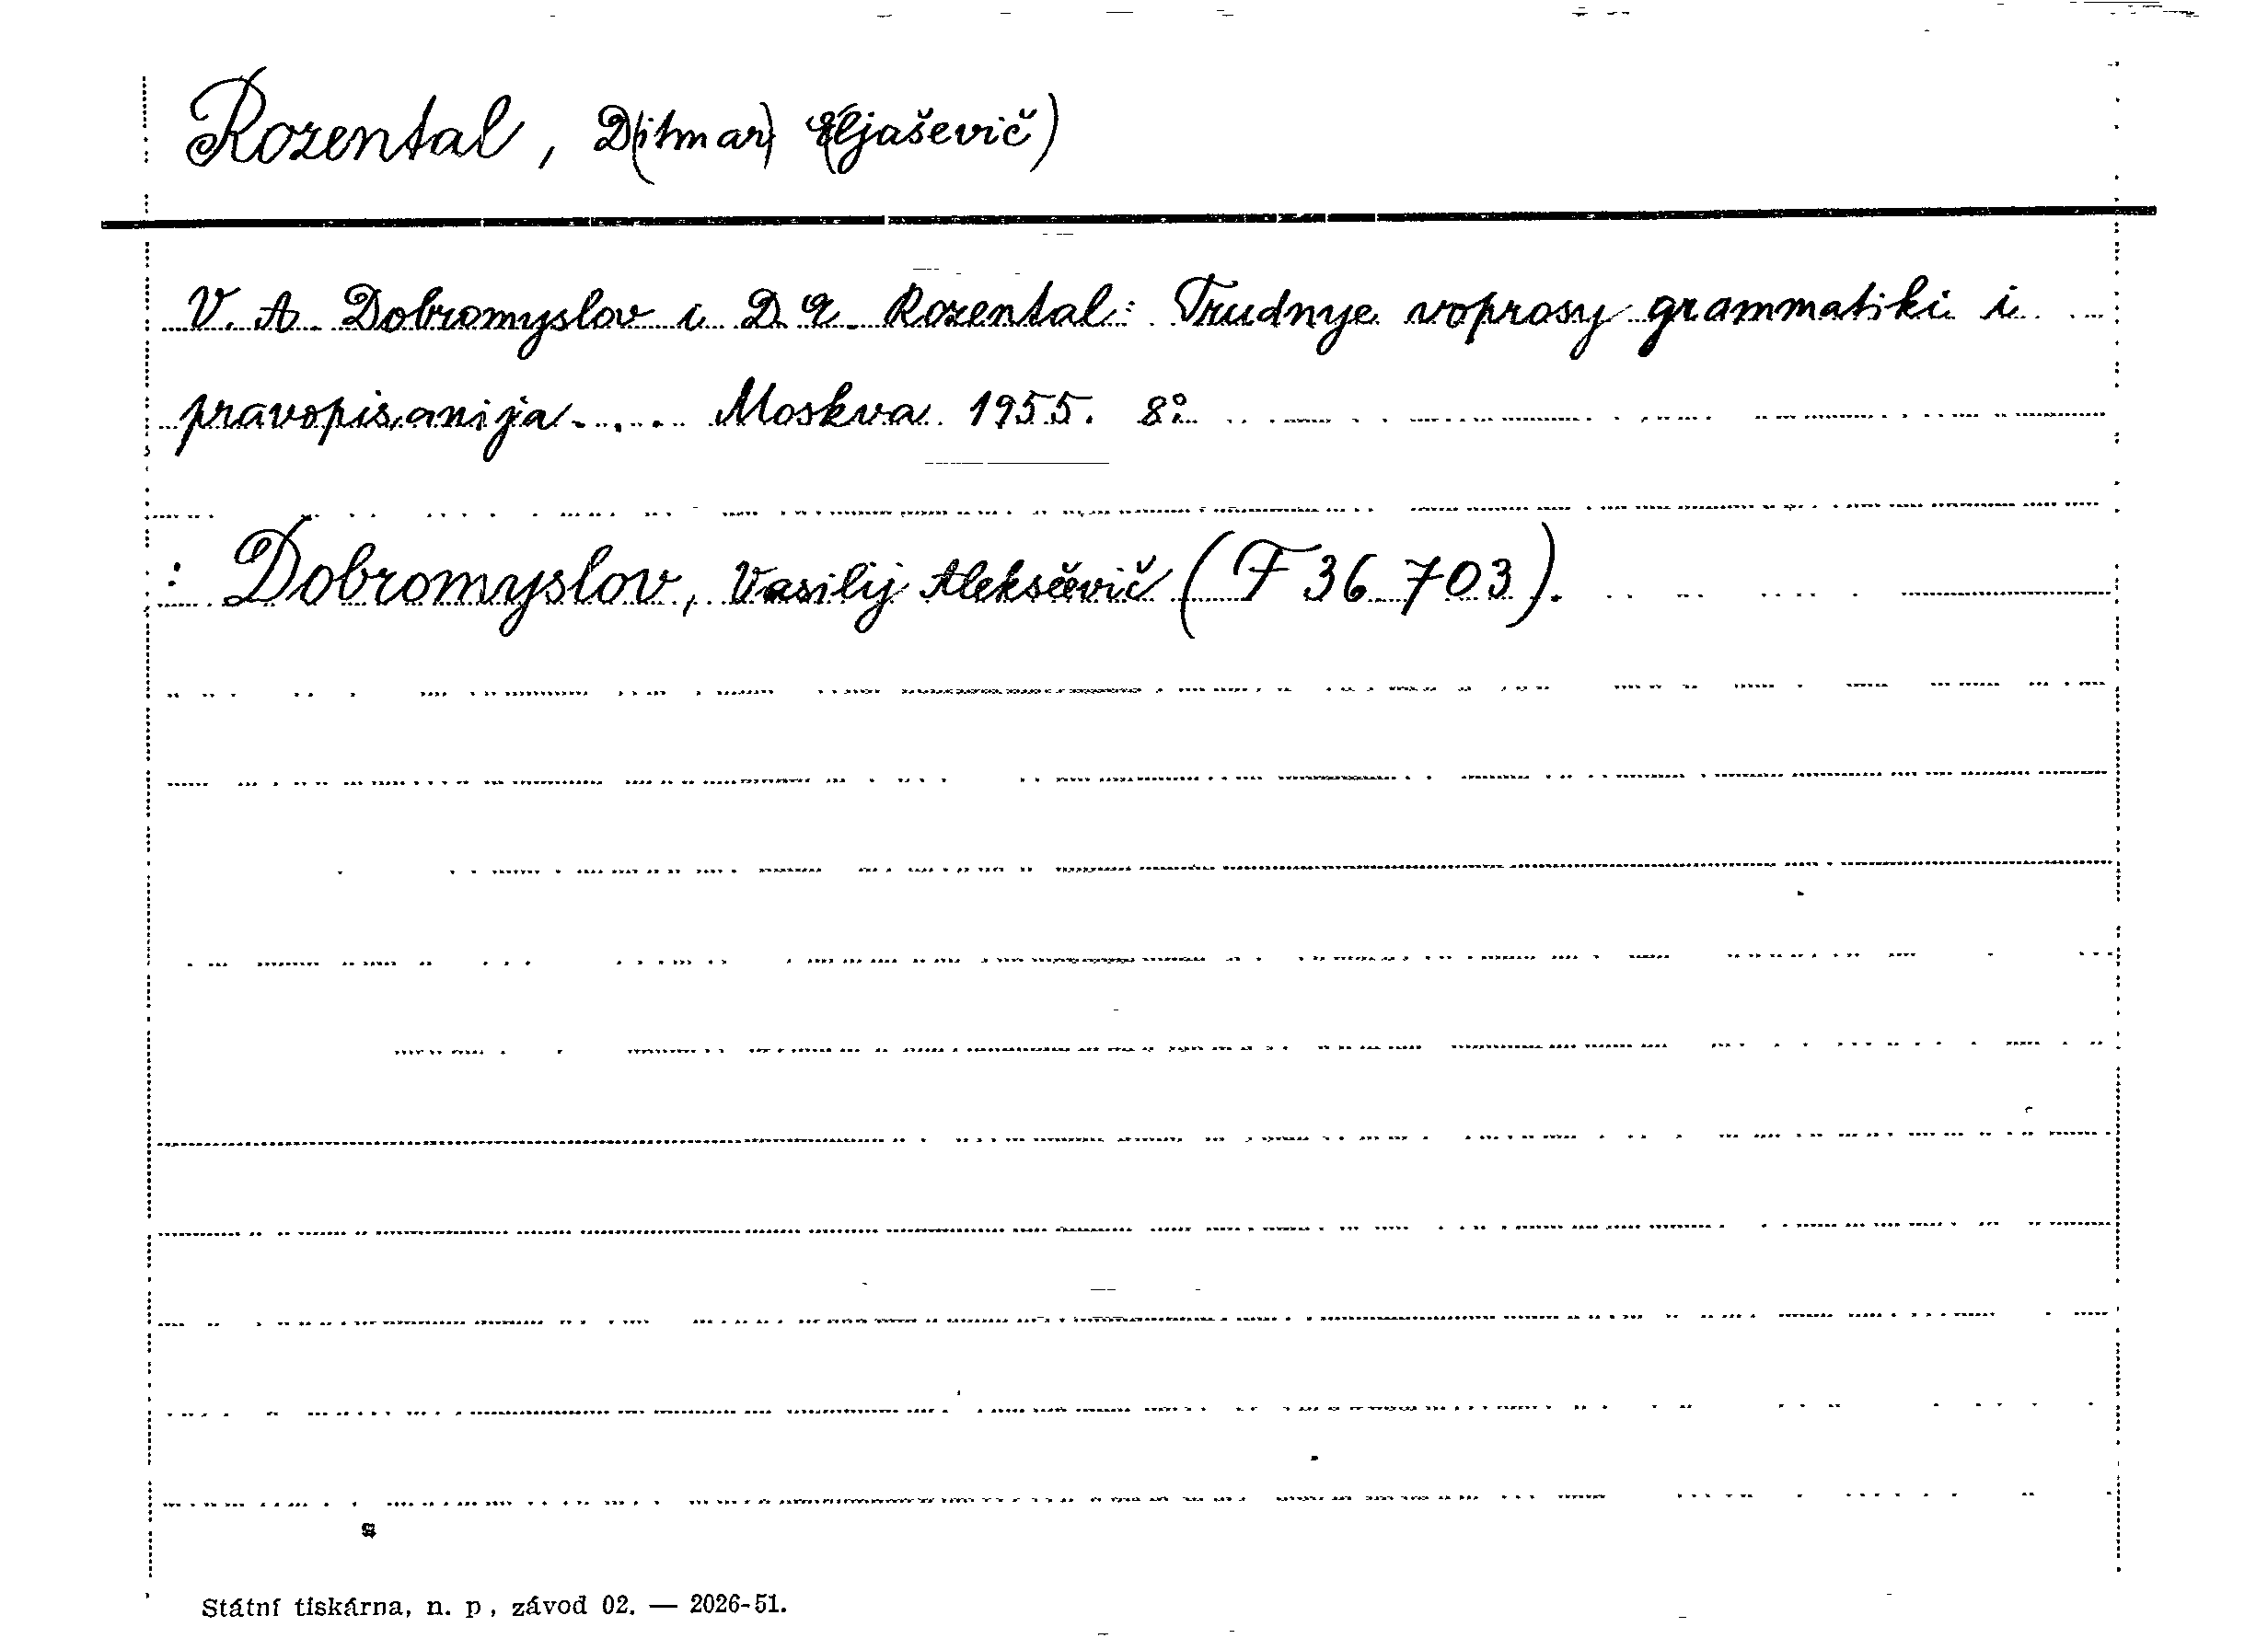 Rozental, D(itmar) E(ljaševič)
V. A. Dobromyslov i D. E. Rozental: Trudnye voprosy grammatiki i
pravopisanija..... Moskva 1955. 8°.
: Dobromyslov, Vasilij Aleksěevič (F 36 703).
Státní tiskárna, n. p., závod 02. — 2026-51.